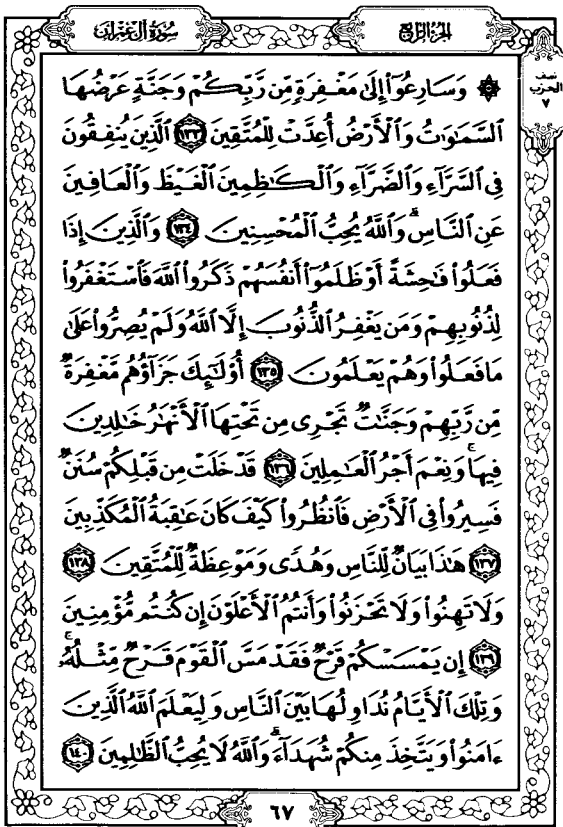 سُورَةُ آلِ عِمْرَانَ
الجُزءُ الرَّابِعُ
نصف
الحزب
٧
۞ وَسَارِعُوٓاْ إِلَىٰ مَغْفِرَةٍ مِّن رَّبِّكُمْ وَجَنَّةٍ عَرْضُهَا
السَّمَٰوَٰتُ وَٱلْأَرْضُ أُعِدَّتْ لِلْمُتَّقِينَ ١٣٣ ٱلَّذِينَ يُنفِقُونَ
فِى ٱلسَّرَّآءِ وَٱلضَّرَّآءِ وَٱلْكَٰظِمِينَ ٱلْغَيْظَ وَٱلْعَافِينَ
عَنِ ٱلنَّاسِ ۗ وَٱللَّهُ يُحِبُّ ٱلْمُحْسِنِينَ ١٣٤ وَٱلَّذِينَ إِذَا
فَعَلُواْ فَٰحِشَةً أَوْ ظَلَمُوٓاْ أَنفُسَهُمْ ذَكَرُواْ ٱللَّهَ فَٱسْتَغْفَرُواْ
لِذُنُوبِهِمْ وَمَن يَغْفِرُ ٱلذُّنُوبَ إِلَّا ٱللَّهُ وَلَمْ يُصِرُّواْ عَلَىٰ
مَا فَعَلُواْ وَهُمْ يَعْلَمُونَ ١٣٥ أُوْلَٰٓئِكَ جَزَآؤُهُم مَّغْفِرَةٌ
مِّن رَّبِّهِمْ وَجَنَّٰتٌ تَجْرِى مِن تَحْتِهَا ٱلْأَنْهَٰرُ خَٰلِدِينَ
فِيهَا ۚ وَنِعْمَ أَجْرُ ٱلْعَٰمِلِينَ ١٣٦ قَدْ خَلَتْ مِن قَبْلِكُمْ سُنَنٌ
فَسِيرُواْ فِى ٱلْأَرْضِ فَٱنظُرُواْ كَيْفَ كَانَ عَٰقِبَةُ ٱلْمُكَذِّبِينَ
١٣٧ هَٰذَا بَيَانٌ لِّلنَّاسِ وَهُدًى وَمَوْعِظَةٌ لِّلْمُتَّقِينَ ١٣٨
وَلَا تَهِنُواْ وَلَا تَحْزَنُواْ وَأَنتُمُ ٱلْأَعْلَوْنَ إِن كُنتُم مُّؤْمِنِينَ
١٣٩ إِن يَمْسَسْكُمْ قَرْحٌ فَقَدْ مَسَّ ٱلْقَوْمَ قَرْحٌ مِّثْلُهُۥ ۚ
وَتِلْكَ ٱلْأَيَّامُ نُدَاوِلُهَا بَيْنَ ٱلنَّاسِ وَلِيَعْلَمَ ٱللَّهُ ٱلَّذِينَ
ءَامَنُواْ وَيَتَّخِذَ مِنكُمْ شُهَدَآءَ ۗ وَٱللَّهُ لَا يُحِبُّ ٱلظَّٰلِمِينَ ١٤٠
٦٧